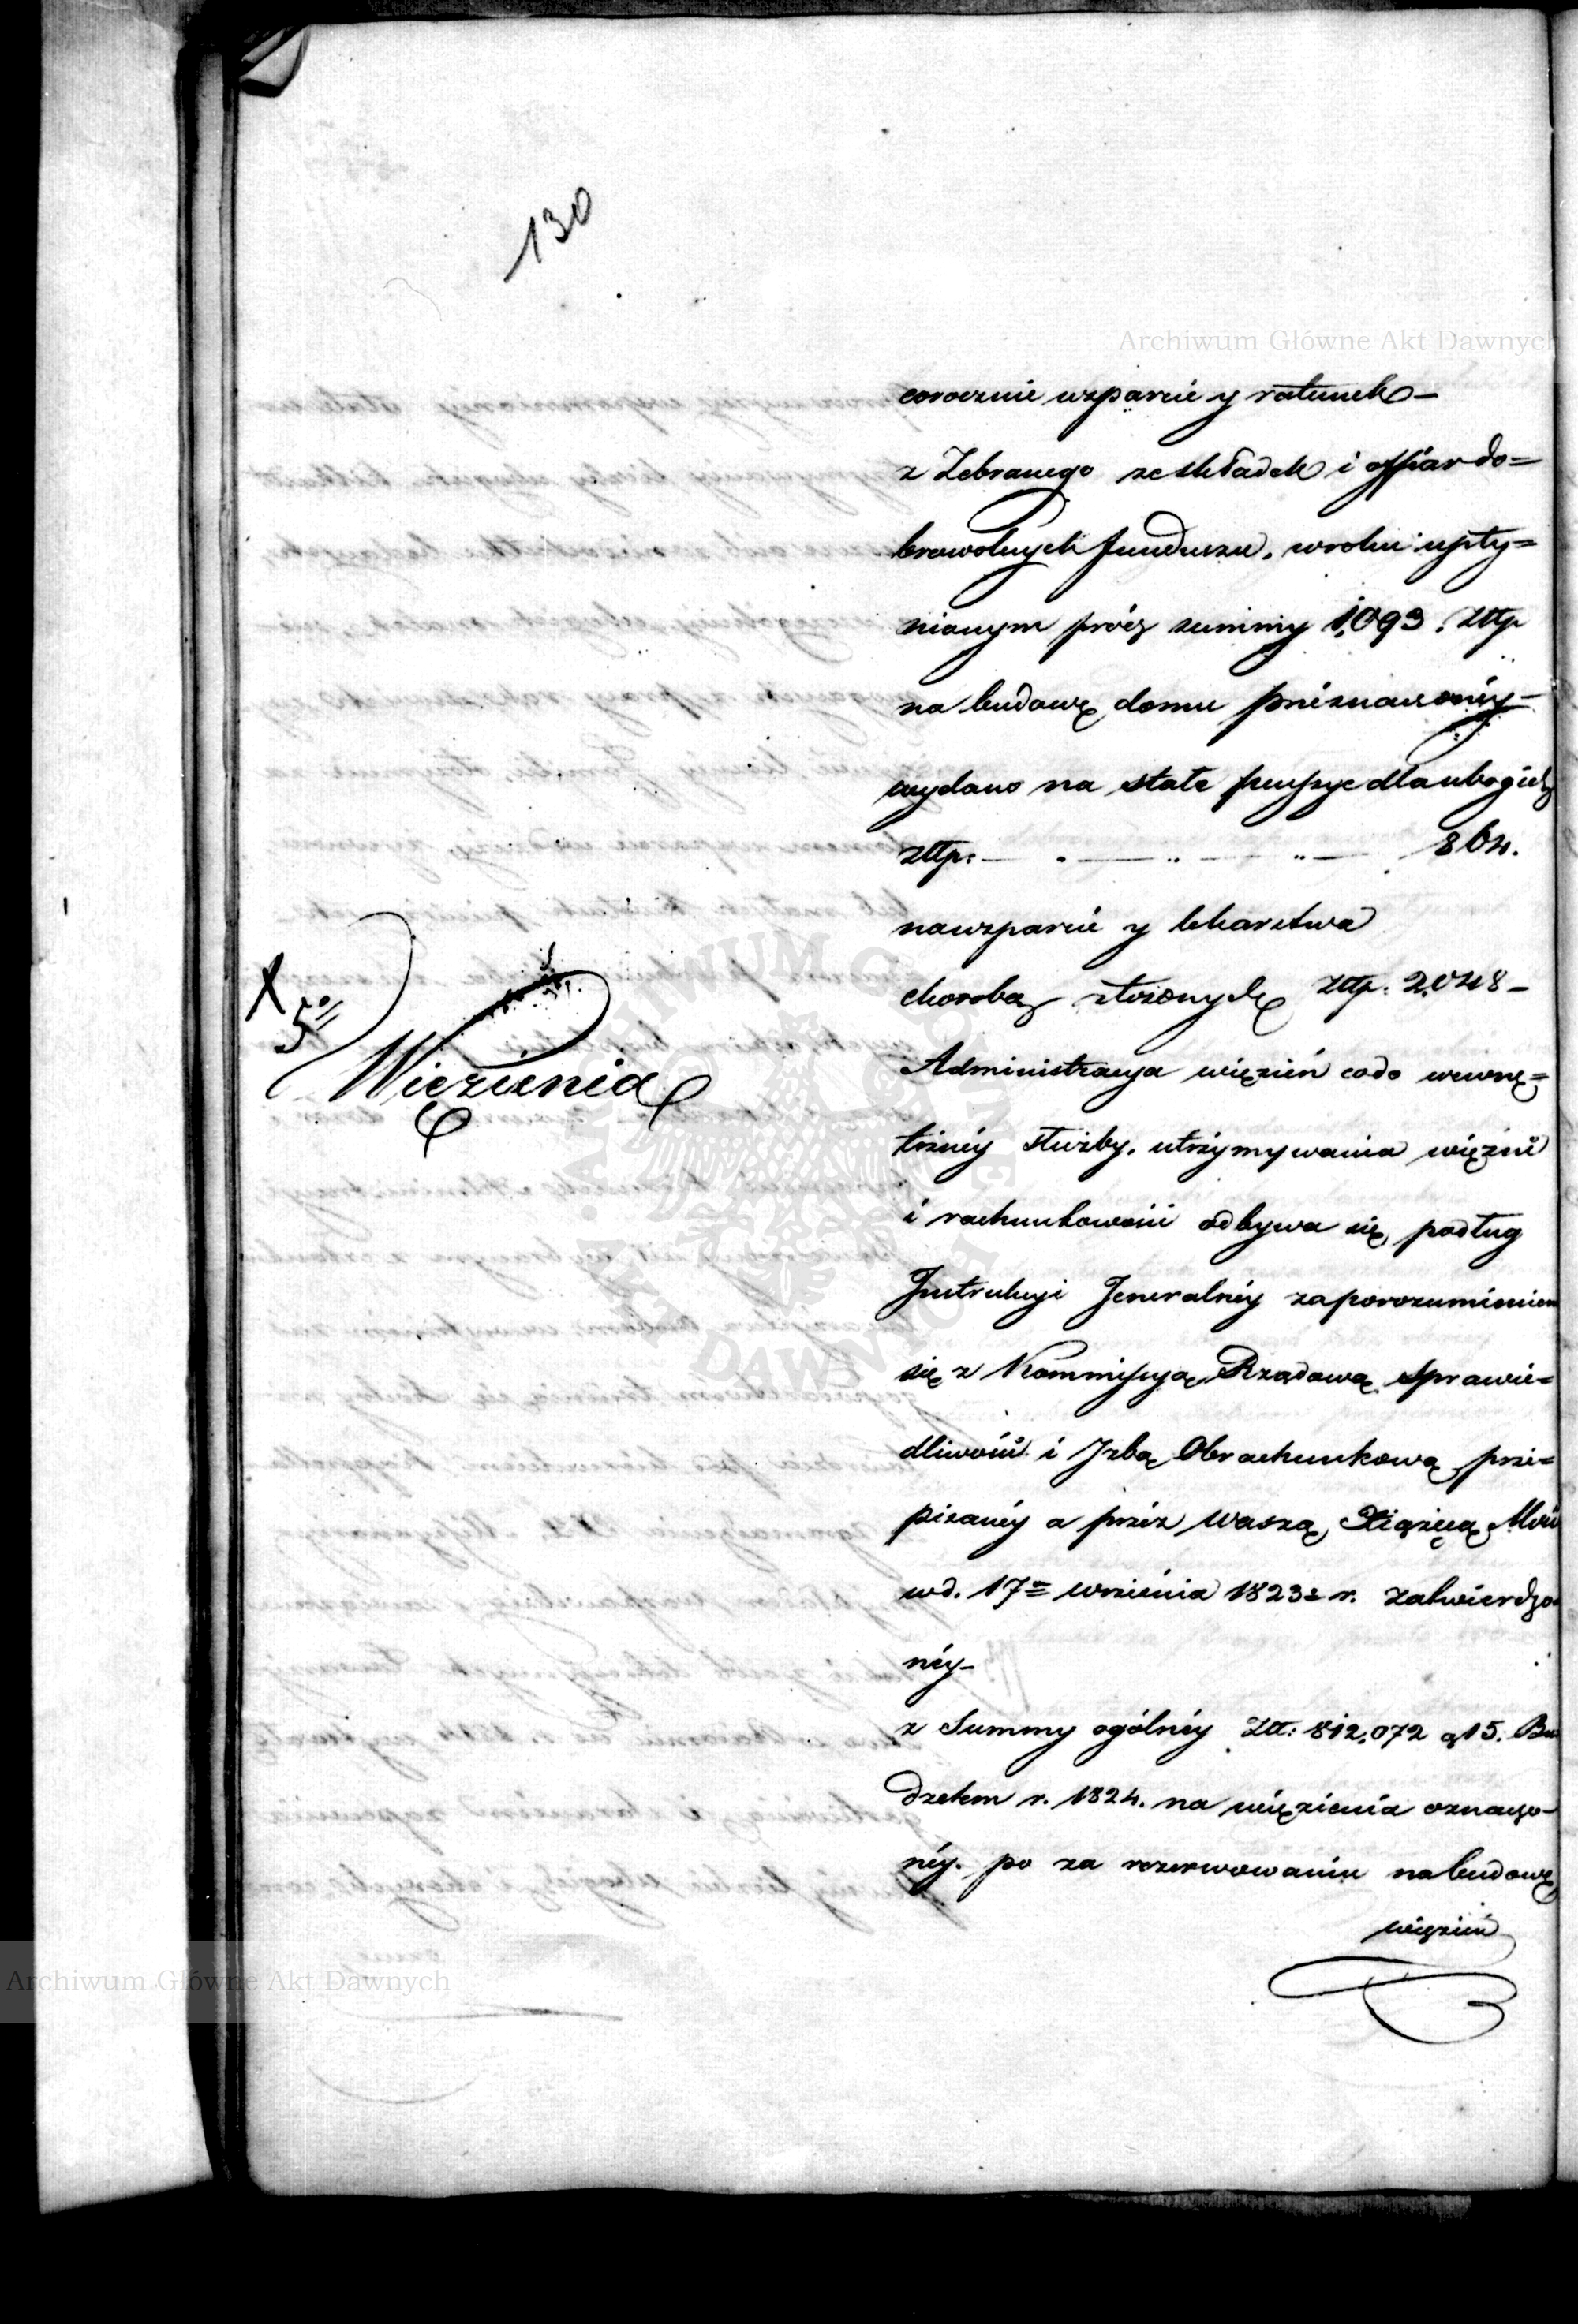 130
Archiwum Główne Akt Dawnych
corocznie wsparcie y ratunek –
z Zebranego ze składek i offiar do=
browolnych funduszu, w roku upły=
nionym prócz summy 1,093. złtp
na budowę domu przeznaczonéy –
wydano na stałe pensye dla ubogich
złtp: — „ — „ — „ — 864.
na wsparcie y lekarstwa
chorobą złożonych złtp. 2,048 –
X
5o//
Więzienia
Administracya więzień co do wewnę=
trznéy służby, utrzymywania więźni
i rachunkowości odbywa się podług
Instrukcyi Jeneralnéy za porozumieniem
się z Kommissyą Rządową Sprawie=
dliwości i Izbą Obrachunkową prze=
pisanéy a przez Waszą Xiążęcą Mość
w d. 17 września 1823 r. zatwierdzo=
néy –
z Summy ogólnéy Złt: 812,072 g 15. Bu
dżetem r. 1824. na więzienia oznaczo=
néy. po za rezerwowaniu na budowę
więzień
Archiwum Główne Akt Dawnych
ARCHIWUM GŁÓWNE AKT DAWNYCH